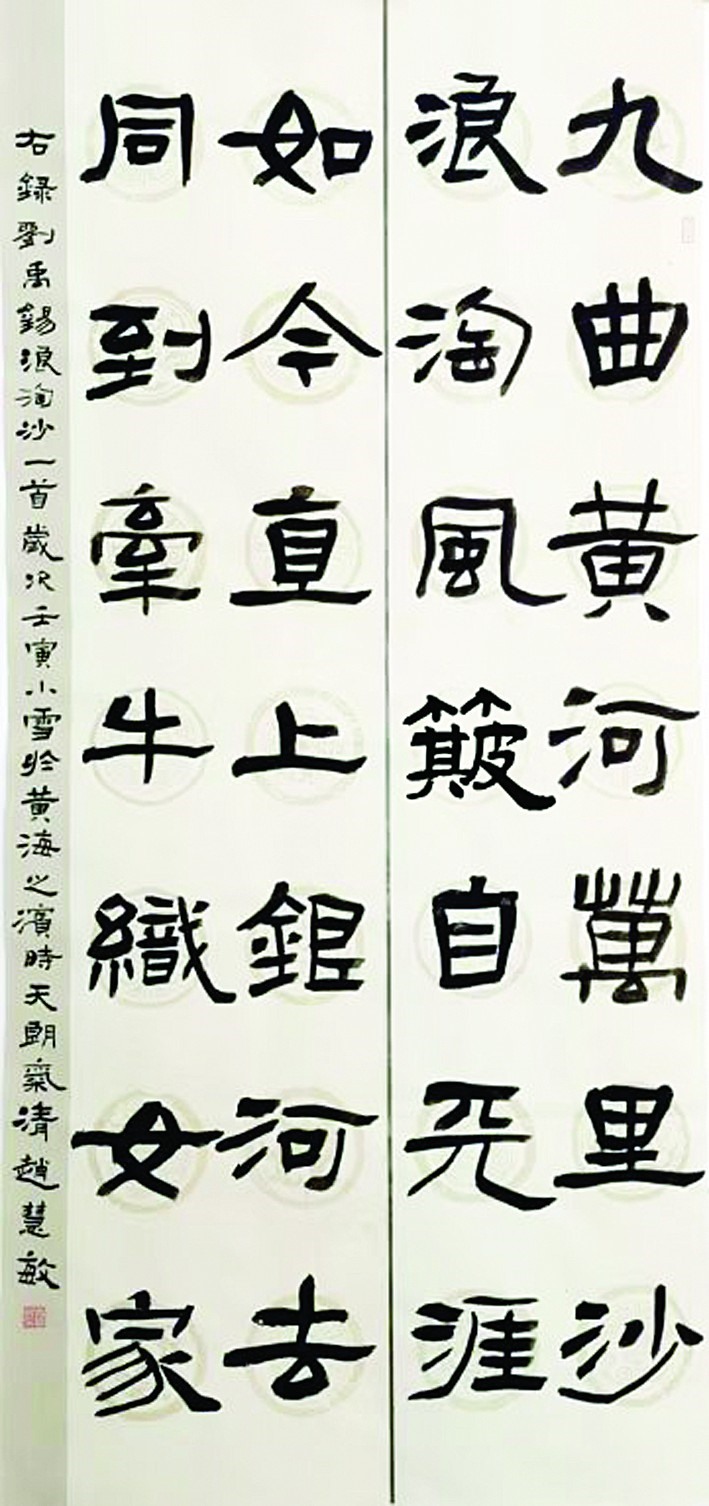 九曲黄河萬里沙
浪淘風簸自天涯
如今直上銀河去
同到牽牛織女家
右録劉禹錫浪淘沙一首歲次壬寅小雪於黄海之濱時天朗氣清趙慧敏